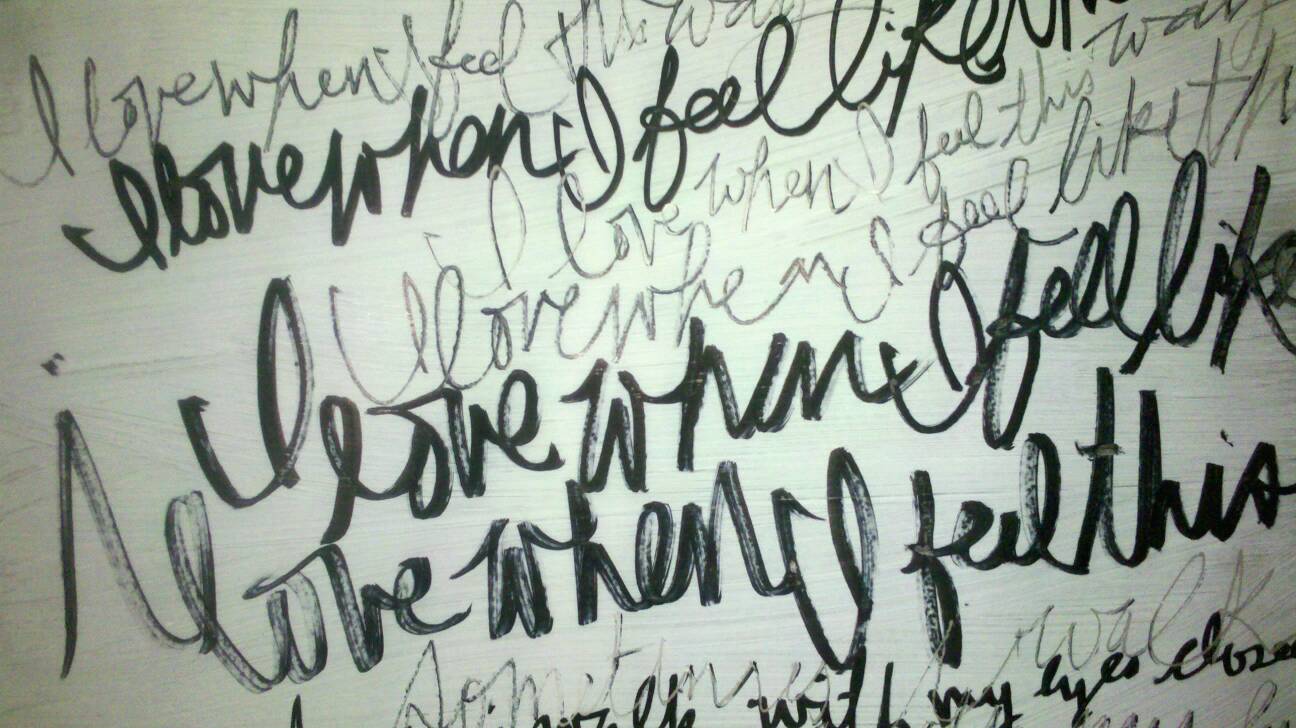 I love when I feel this way
I love when I feel like
I love when I feel this way
I love when I feel like th
I love when I feel like
I love when I feel this
Sometimes I walk
walk with my eyes close